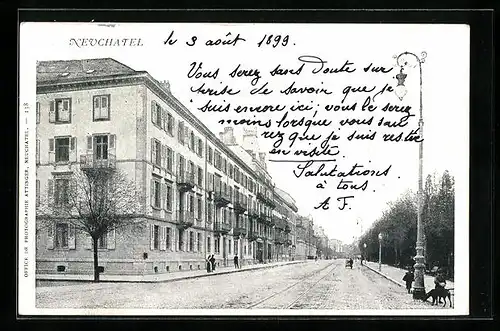 NEUCHATEL
le 3 août 1899.
Vous serez sans Doute sur-
prise de savoir que je
suis encore ici; vous le serez
moins lorsque vous sau-
rez que je suis restée
en visite.
Salutations
à tous.
A F.
OFFICE DE PHOTOGRAPHIE ATTINGER, NEUCHATEL. — 438